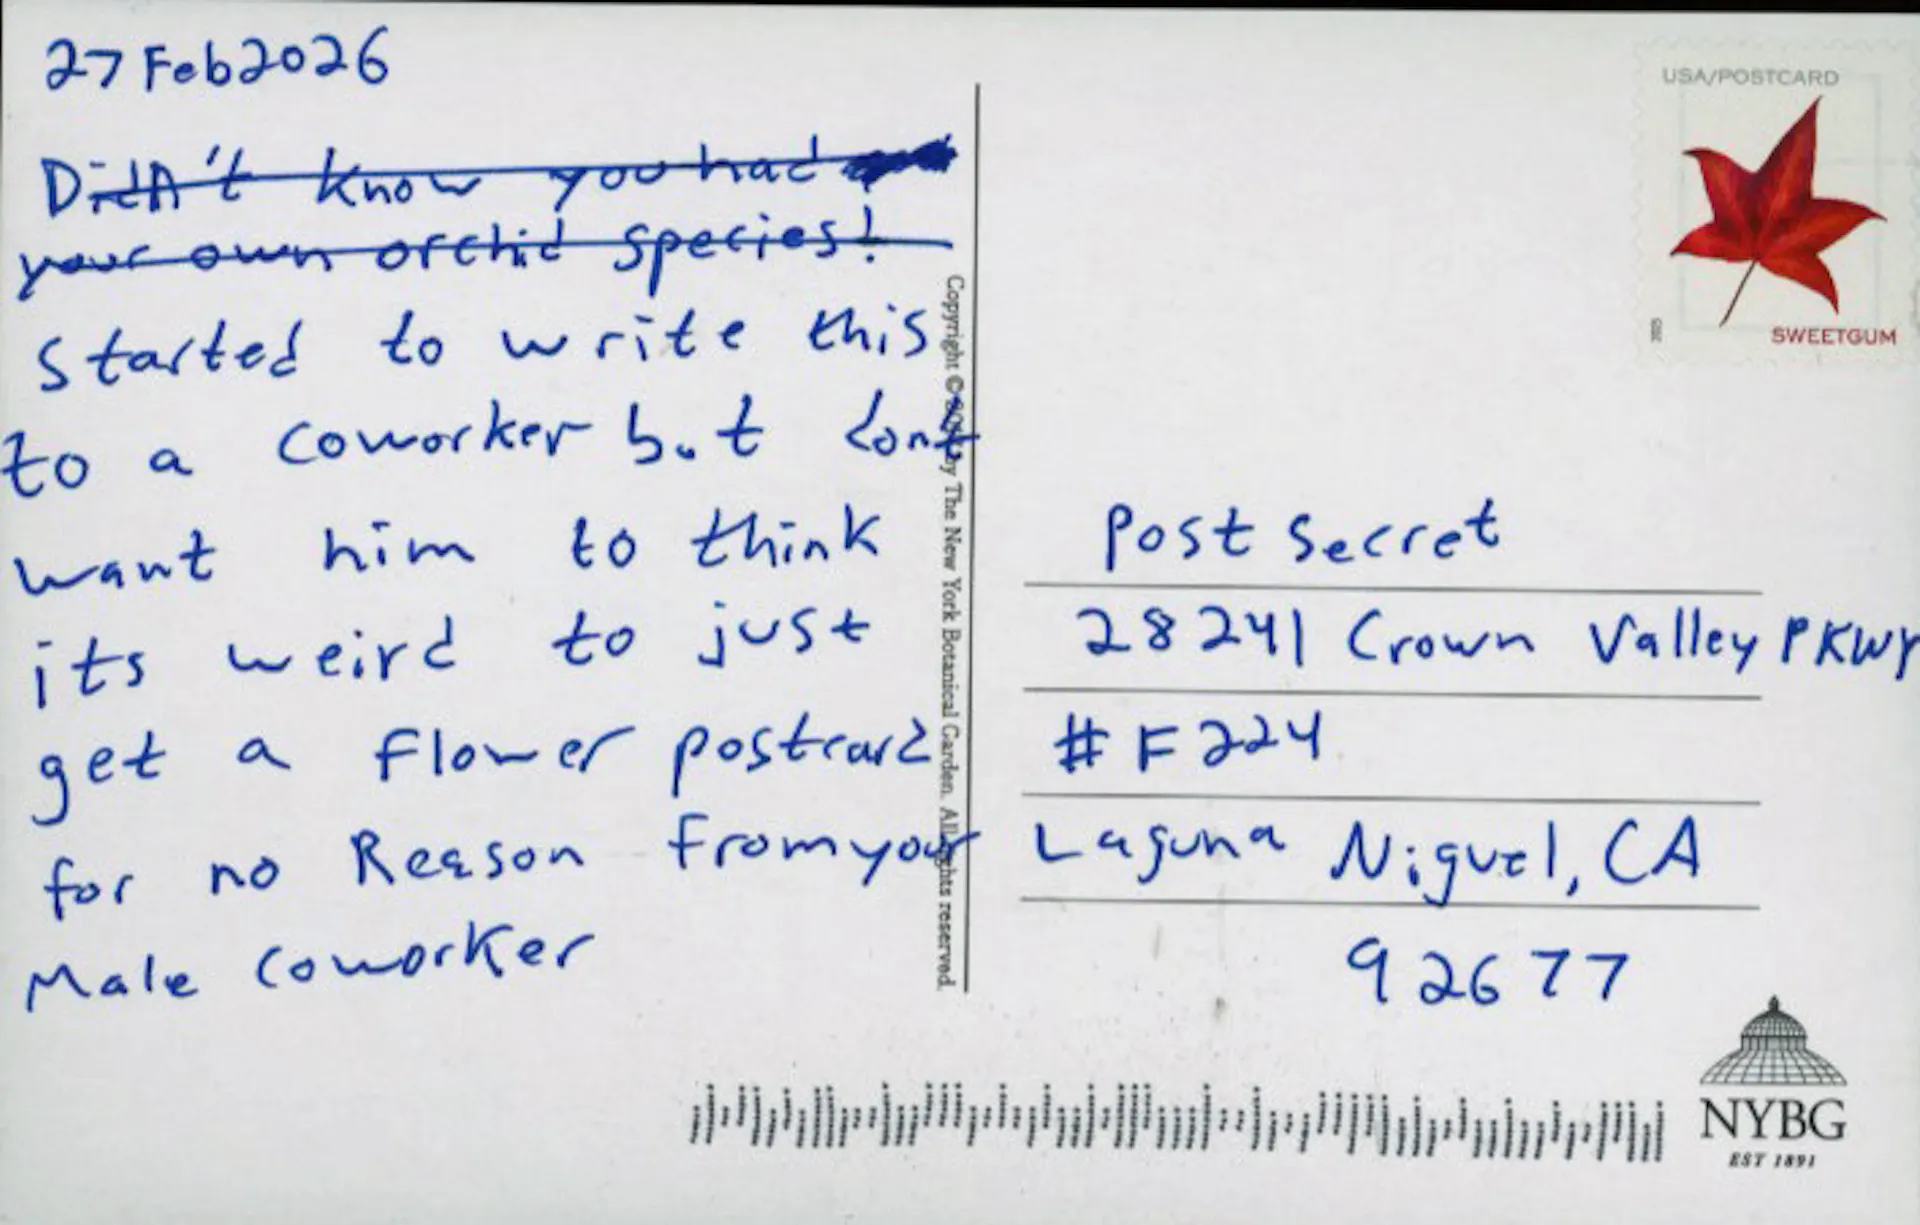 27 Feb 2026
Didn't know you had
your own orchid species!
started to write this
to a coworker but dont
want him to think
its weird to just
get a flower postcard
for no Reason from your
Male coworker
USA/POSTCARD
SWEETGUM
Post Secret
28241 Crown Valley PKWY
#F224
Laguna Niguel, CA
92677
by The New York Botanical Garden. All rights reserved.
NYBG
EST 1891